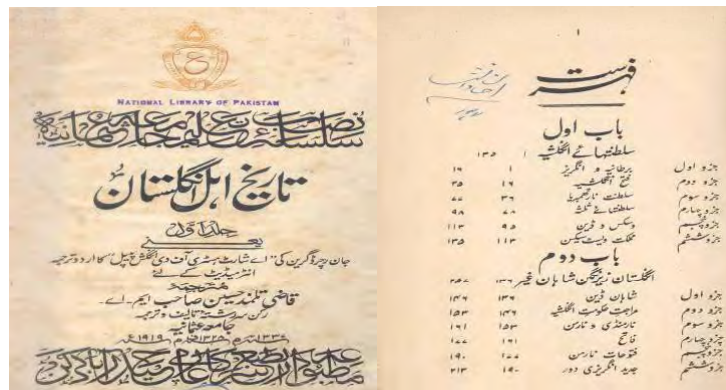 NATIONAL LIBRARY OF PAKISTAN
سلسلہ نصاب تعلیم جامعہ عثمانیہ
تاریخ اہل انگلستان
جلد اول
یعنی
جان رچرڈ گرین کی "اے شارٹ ہسٹری آف دی انگلش پیپل" کا اردو ترجمہ
انٹرمیڈیٹ کے لئے
مترجمہ
قاضی تلمذ حسین صاحب ایم۔اے۔
رکن سررشتہ تالیف و ترجمہ
جامعہ عثمانیہ
۱
فہرست
باب اول
سلطنتہائے انگلشیہ ۱ ۱۳۵
جزو اول برطانیہ و انگریز ۱ ۱۶
جزو دوم فتح انگلشیہ ۱۶ ۳۵
جزو سوم سلطنت نارتھمبریا ۳۶
جزو چہارم سلطنتہائے ثلثہ
جزو پنجم وسکس و ڈین ۹۵ ۱۱۳
جزو ششم مملکت ویسٹ سیکسن ۱۱۳ ۱۳۵
باب دوم
انگلستان زیر نگین شاہان غیر ۱۳۶
جزو اول شاہان ڈین ۱۳۶ ۱۴۶
جزو دوم مراجعت حکومت انگلشیہ ۱۴۶ ۱۵۳
جزو سوم نارمنڈی و نارمن ۱۵۳ ۱۶۱
جزو چہارم فاتح ۱۶۱ ۱۷۷
جزو پنجم فتوحات نارمن ۱۷۷ ۱۹۰
جزو ششم جدید انگریزی دور ۱۹۰ ۲۱۳